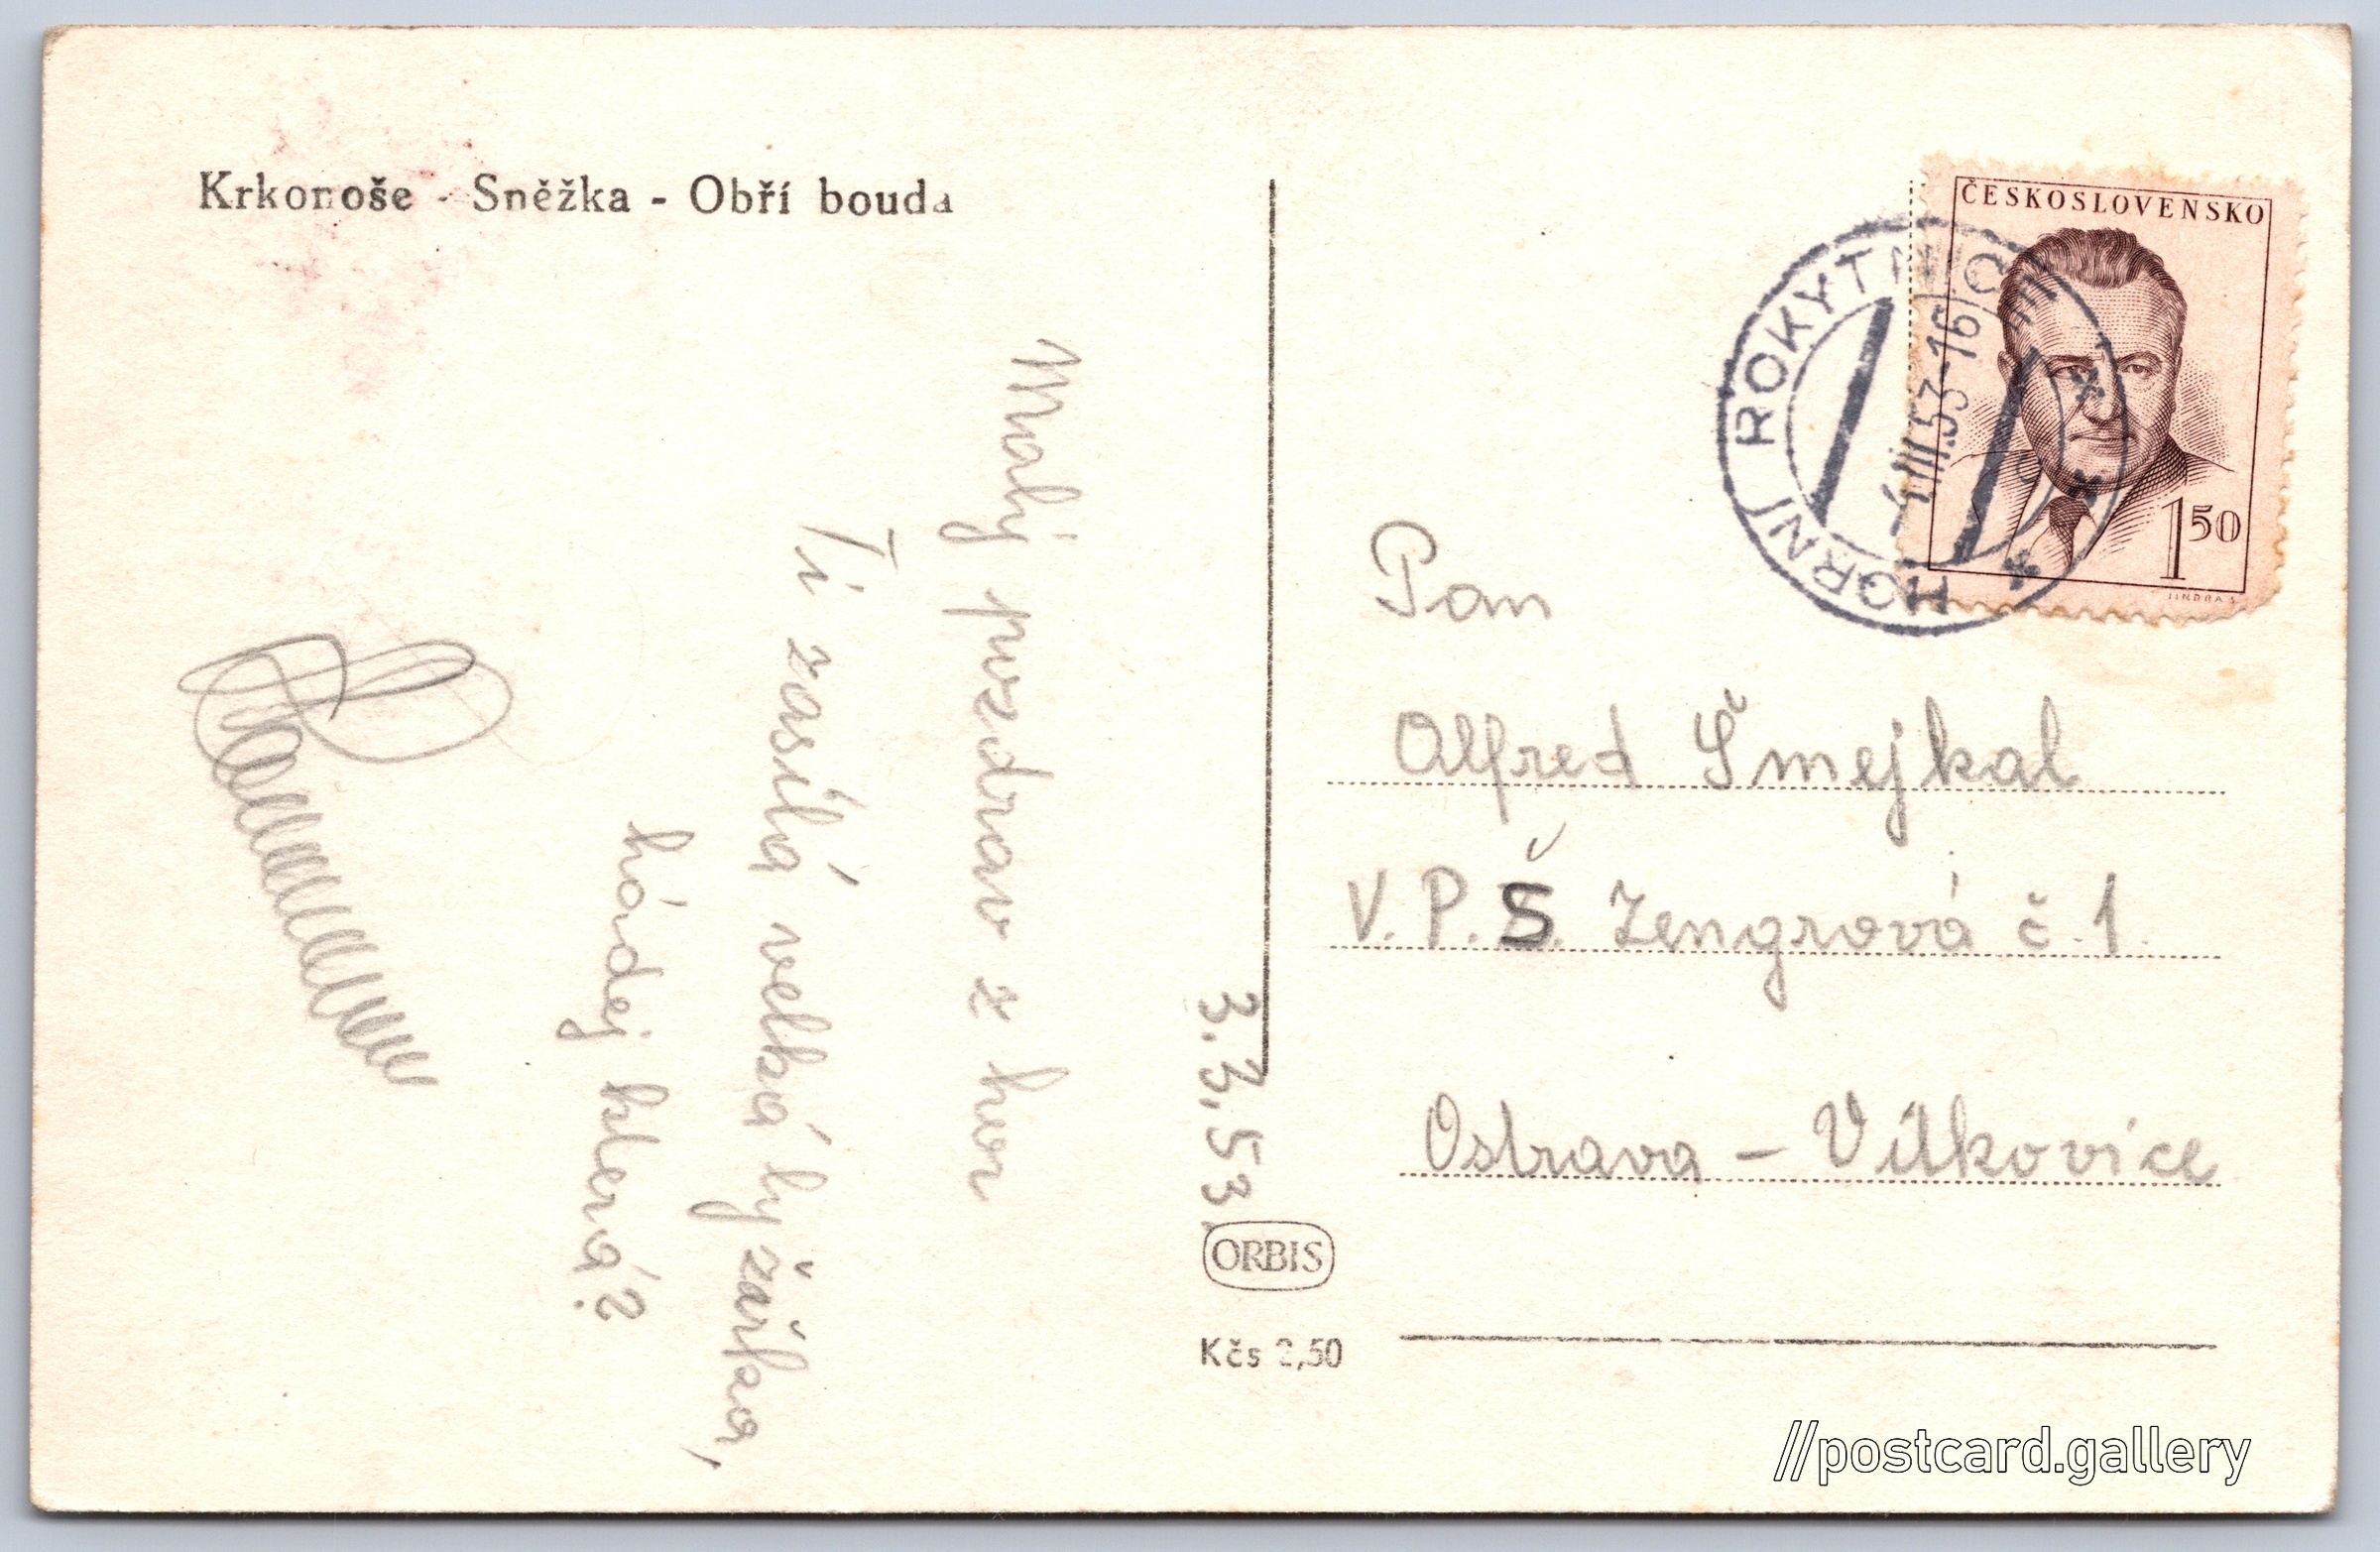 Krkonoše - Sněžka - Obří bouda
Malý pozdrav z hor
Ti zasílá velká lyžařka,
hádej která?
3.3.53
ORBIS
Kčs 2,50
ČESKOSLOVENSKO
1 50
JINDRA S.
HORNÍ ROKYTNICE
4.III.53-16
Pan
Alfred Šmejkal
V. P. Š. Zengrová č. 1.
Ostrava - Vítkovice
//postcard.gallery